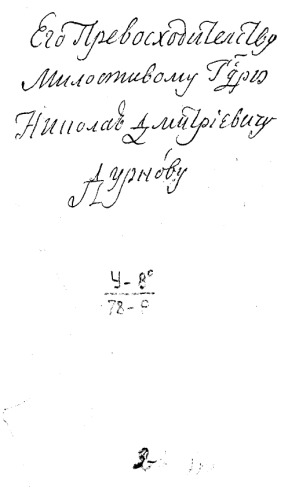 Его Превосходителству
Милостивому Гдрю
Николаю Дмитріевичу
Дурнову
У-8°
78-9